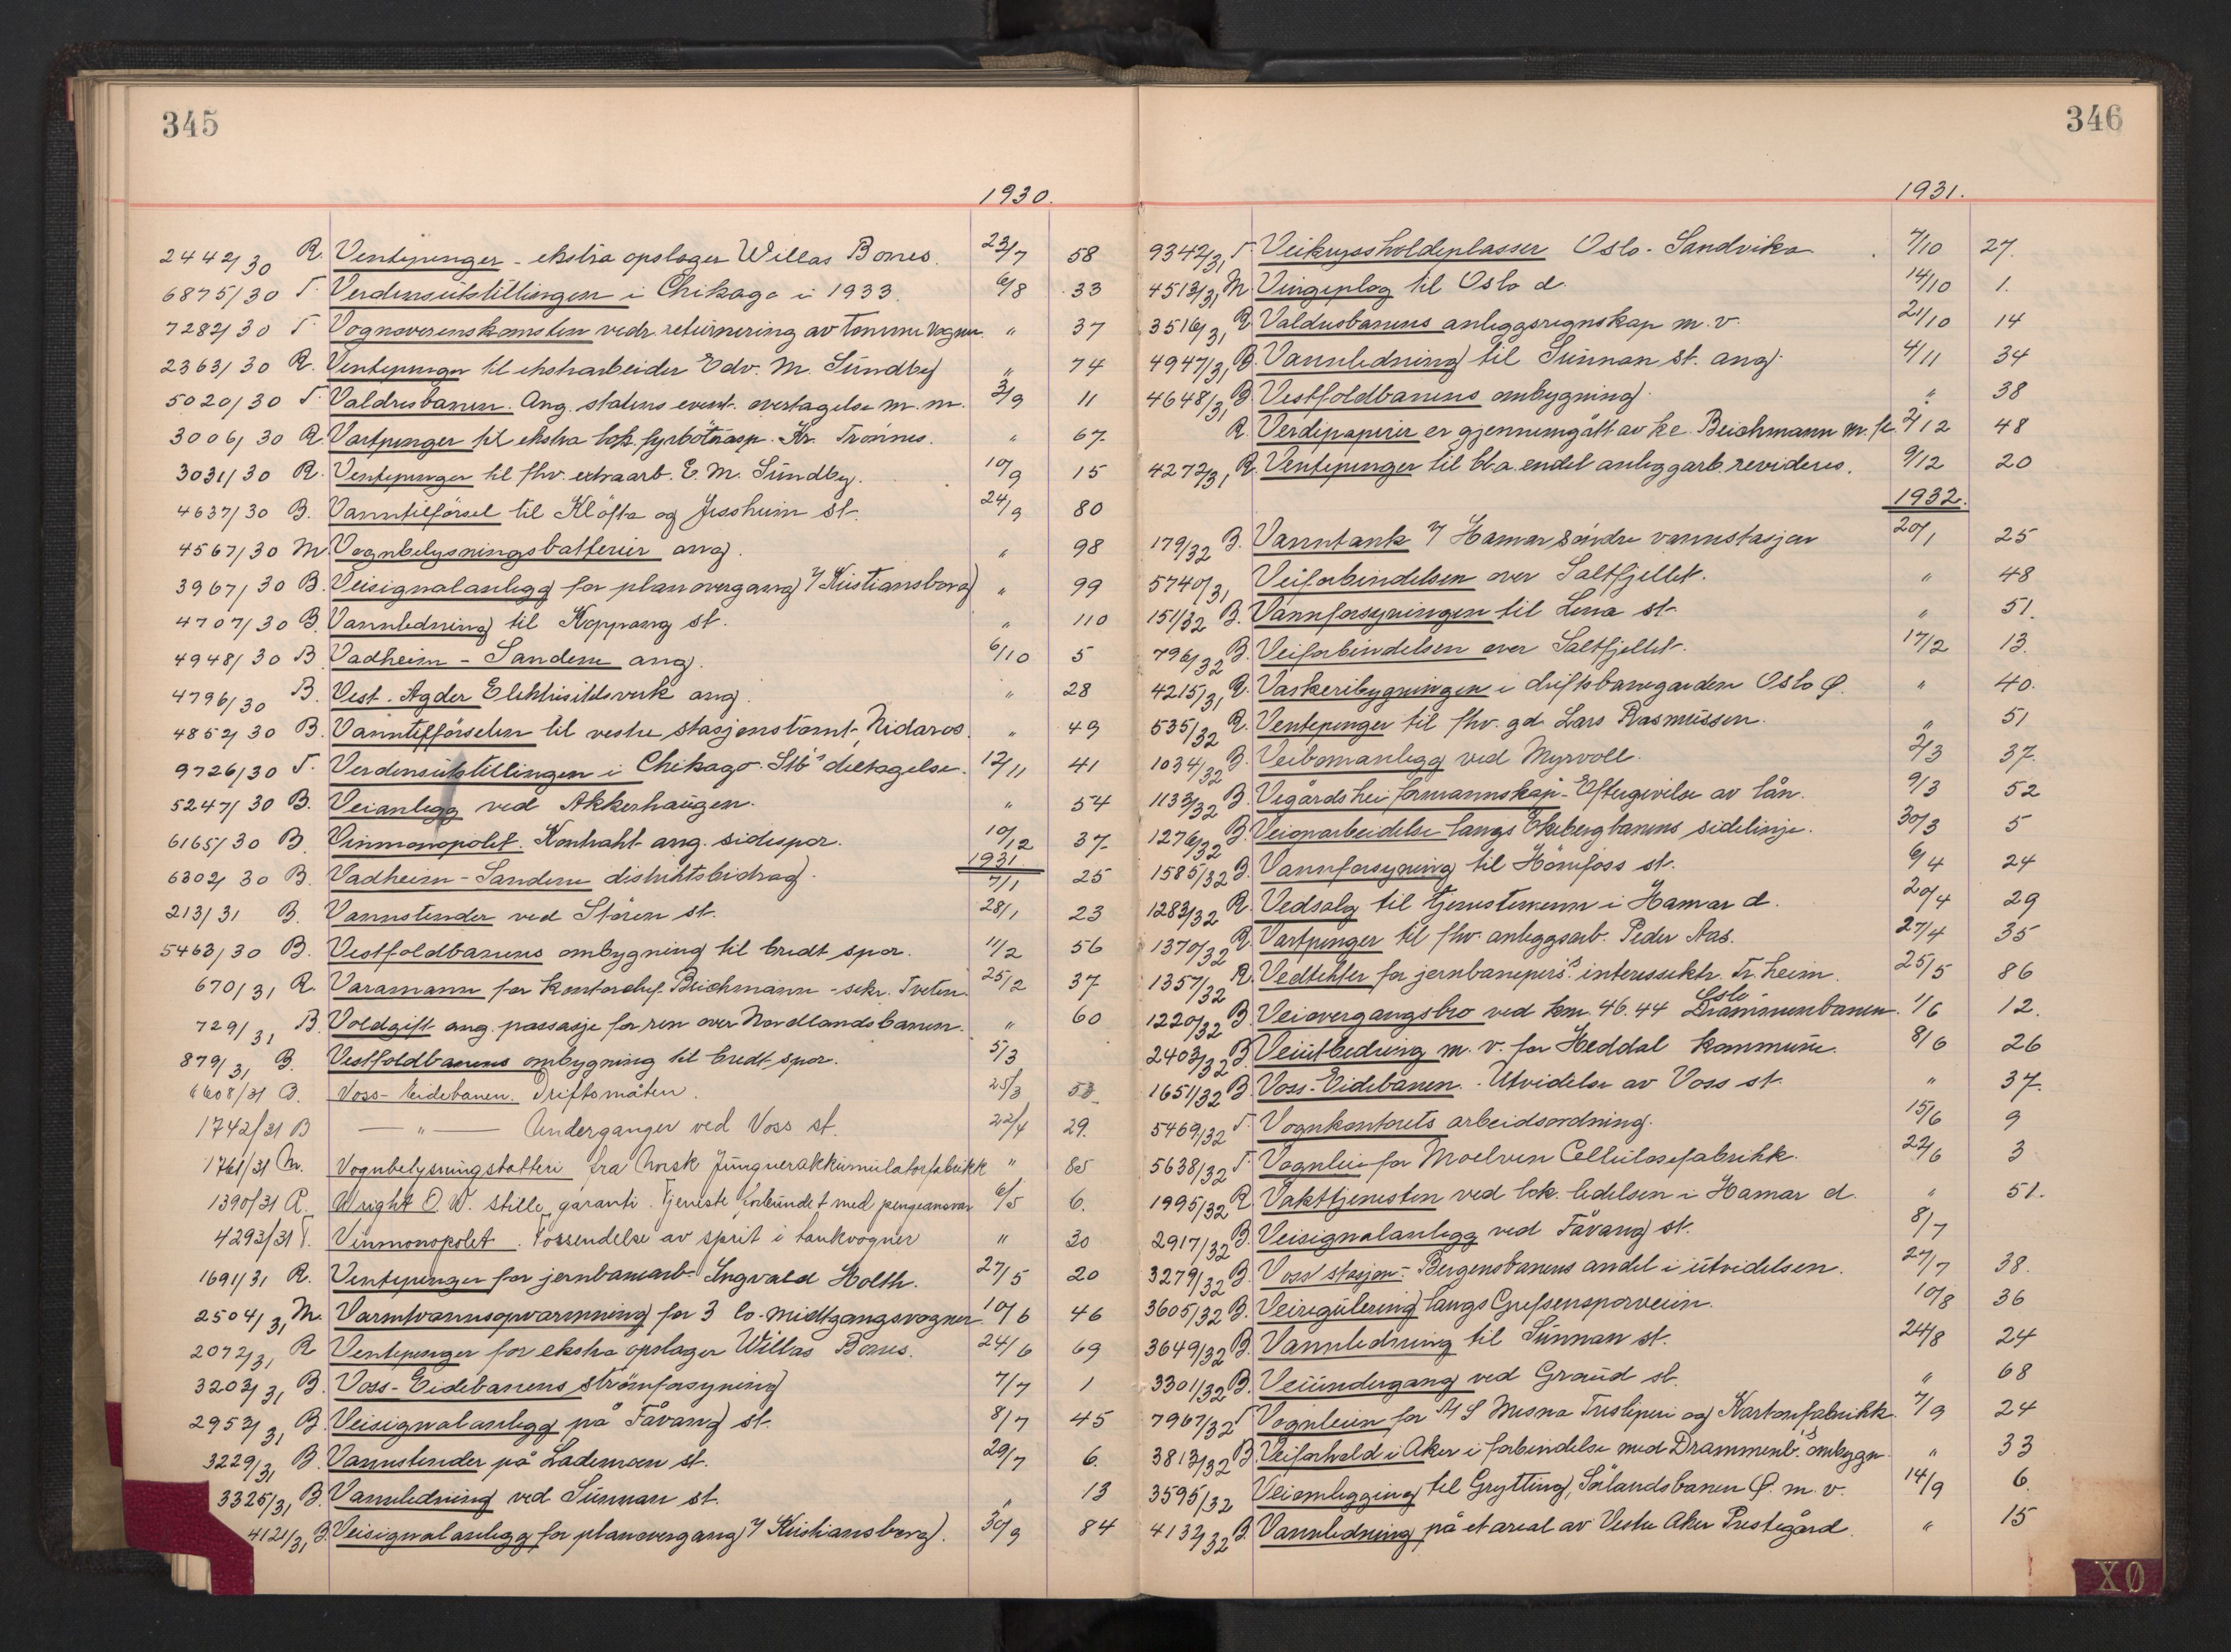 345
1930.
2442/30 R. Ventepenger - ekstra opslager Willas Bones. 23/7 58
6875/30 T. Verdensutstillingen i Chikago i 1933. 6/8 33
7282/30 T. Vognoverenskomsten vedr. returnering av tomme vogner. " 37
2363/30 R. Ventepenger til ekstraarbeider Edv. M. Sundby " 74
5020/30 T. Valdresbanen. Ang. statens event. overtagelse m. m. 3/9 11
3006/30 R. Vartpenger til ekstra lok. fyrböterasp. Kr. Trönnes. " 67
3031/30 R. Ventepenger til fhv. extraarb. E. M. Sundby. 10/9 15
4637/30 B. Vanntilförsel til Klöfta og Jessheim st. 24/9 80
4567/30 M. Vognbelysningsbatterier ang. " 98
3967/30 B. Veisignalanlegg for planovergang v/ Kristiansborg " 99
4707/30 B. Vannledning til Koppang st. " 110
4948/30 B. Vadheim - Sandene ang. 6/10 5
4796/30 B. Vest-Agder Elektrisitetsverk ang. " 28
4852/30 B. Vanntilförselen til vestre stasjonstomt, Nidaros. " 49
9726/30 T. Verdensutstillingen i Chikago. Stb's deltagelse. 12/11 41
5247/30 B. Veianlegg ved Akkerhaugen. " 54
6165/30 B. Vinmonopolet. Kontrakt ang. sidespor. 10/12 37
1931.
6302/30 B. Vadheim - Sandene distriktsbidrag. 7/1 25
213/31 B. Vannstender ved Stören st. 28/1 23
5463/30 B. Vestfoldbanens ombygning til bredt spor. 11/2 56
670/31 R. Varamann for kontorchef Beichmann - sekr. Tveten. 25/2 37
729/31 B. Voldgift ang. passasje for ren over Nordlandsbanen. " 60
879/31 B. Vestfoldbanens ombygning til bredt spor. 5/3
6608/31 B. Voss-Eidebanen. Driftsmåten. 25/3 53
1742/31 B — " — Underganger ved Voss st. 22/4 29.
1761/31 M. Vognbelysningsbatteri fra Norsk Jungnerakkumulatorfabrikk " 85
1390/31 R. Wright O. W. stille garanti. Tjeneste forbundet med pengeansvar 6/5 6.
4293/31 T. Vinmonopolet. Forsendelse av sprit i tankvogner " 30
1691/31 R. Ventepenger for jernbanearb. Ingvald Holth. 27/5 20
2504/31 M. Varmtvannsopvarmning for 3 Co-midtgangsvogner 10/6 46
2072/31 R Ventepenger for ekstra opslager Willas Bones. 24/6 69
3203/31 B. Voss-Eidebanens strömforsyning 7/7 1
2953/31 B. Veisignalanlegg på Tåvang st. 8/7 45
3229/31 B. Vannstender på Lademoen st. 29/7 6.
3325/31 B. Vannledning ved Sunnan st. " 13
4121/31 B. Veisignalanlegg for planovergang v/ Kristiansborg. 30/9 84
346
1931.
9342/31 T. Veikryssholdeplasser Oslo-Sandvika 7/10 27.
4513/31 M Vingeplog til Oslo d. 14/10 1.
3516/31 R Valdresbanens anleggsregnskap m. v. 21/10 14
4947/31 B. Vannledning til Sunnan st. ang. 4/11 34
4648/31 B Vestfoldbanens ombygning. " 38
R. Verdipapirer er gjennemgått av kc. Beichmann m. fl. 2/12 48
4272/31 R. Ventepenger til bl.a. endel anleggarb. revideres. 9/12 20
1932.
179/32 B. Vanntank v/ Hamar söndre vannstasjon 20/1 25
5740/31 Veiforbindelsen over Saltfjellet. " 48
151/32 B. Vannforsyningen til Lena st. " 51.
796/32 B. Veiforbindelsen over Saltfjellet. 17/2 13.
4215/31 R. Vaskeribygningen i driftsbanegården Oslo Ø. " 40.
535/32 R. Ventepenger til fhv. gd. Lars Rasmussen. " 51
1034/32 B. Veibomanlegg ved Myrvoll. 2/3 37.
1133/32 B. Vegårdshei formannskap - Eftergivelse av lån. 9/3 52
1276/32 B. Veioparbeidelse langs Ekebergbanens sidelinje. 30/3 5
1585/32 B. Vannforsyning til Hönefoss st. 6/4 24
1283/32 R. Vedsalg til tjenestemenn i Hamar d. 20/4 29
1370/32 R. Vartpenger til fhv. anleggsarb. Peder Aas. 27/4 35
1357/32 R. Vedtekter for jernbanepers.s interessektr. Tr.heim. 25/5 86
1220/32 B Veiovergangsbro ved km. 46.44 Oslo Drammenbanen. 1/6 12.
2403/32 B Veiutbedring m. v. for Heddal kommune. 8/6 26
1651/32 B. Voss-Eidebanen. Utvidelse av Voss st. " 37.
5469/32 T. Vognkontorets arbeidsordning. 15/6 9
5638/32 T. Vognleie for Moelven Cellulosefabrikk. 22/6 3
1995/32 R Vakttjenesten ved lok. ledelsen i Hamar d. " 51.
2917/32 B. Veisignalanlegg ved Tåvang st. 8/7
3279/32 B. Voss stasjon: Bergensbanens andel i utvidelsen. 27/7 38.
3605/32 B. Veiregulering langs Grefsensporveien. 10/8 36
3649/32 B. Vannledning til Sunnan st. 24/8 24
3301/32 B. Veiundergang ved Graud st. " 68
7967/32 T Vognleien for A/S Mesna Tresliperi og Kartonfabrikk. 7/9 24
3813/32 B. Veiforhold i Aker i forbindelse med Drammenb.s ombygn. " 33
3595/32 Veiomlegging til Grytting, Sörlandsbanen Ø. m. v. 14/9 6.
4132/32 B. Vannledning på et areal av Vestre Aker Prestegård. " 15
XØ